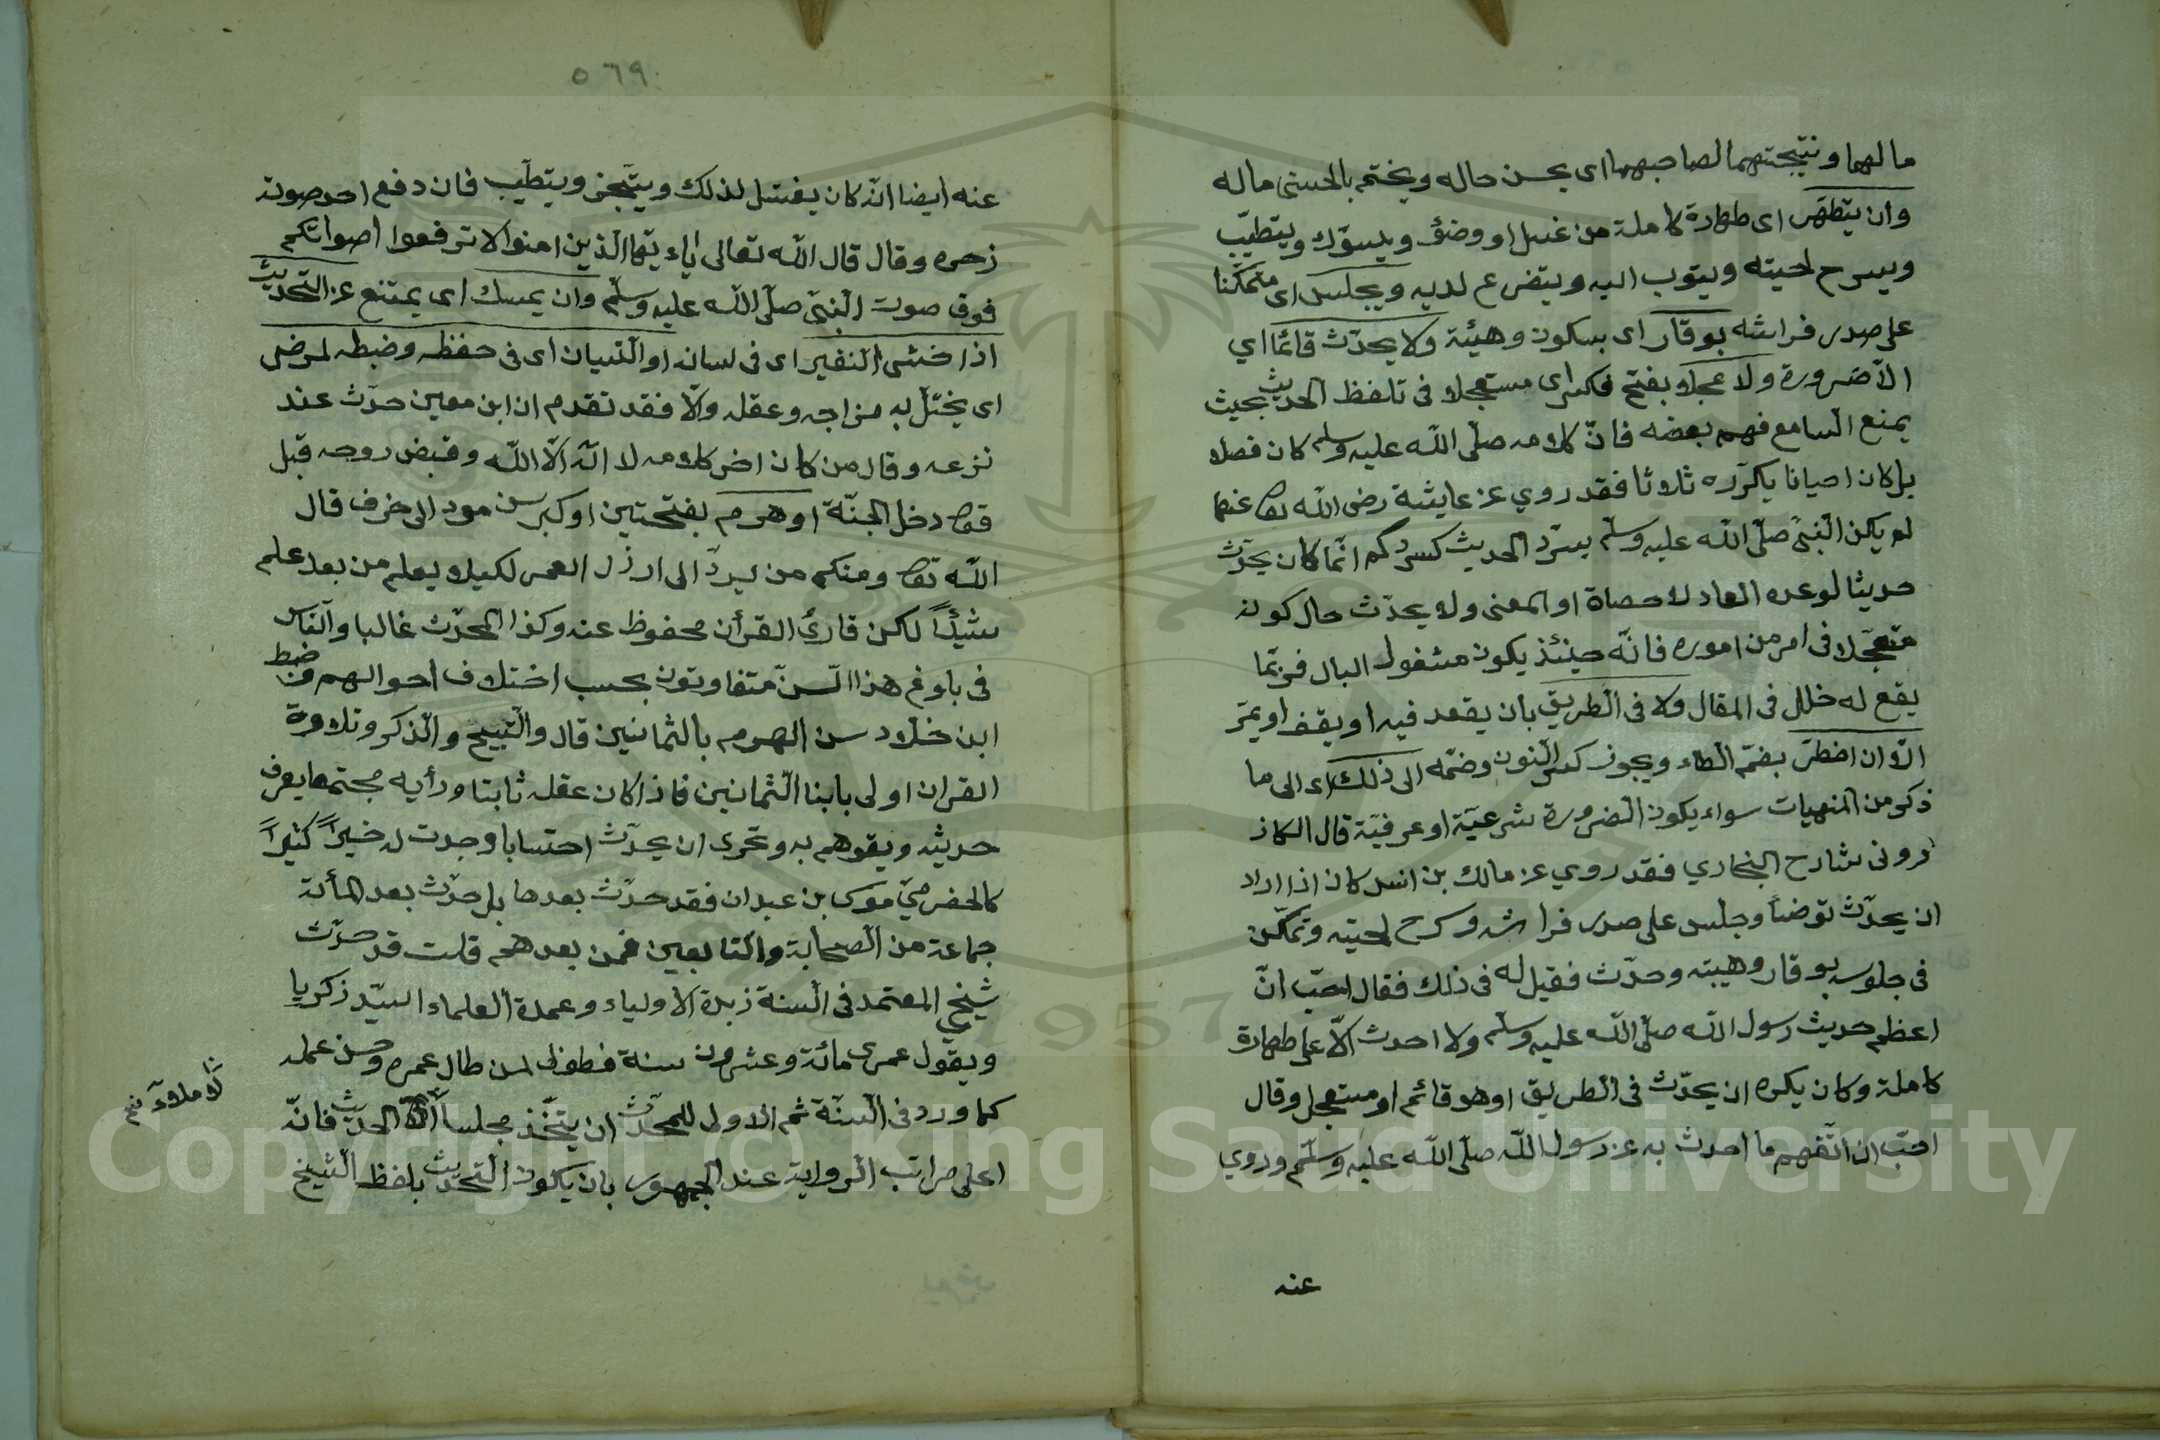 مالهما ونتيجتهما لصاحبهما اى يحسن حاله ويختم بالحسنى ماله
وان يتطهر اى طهارة كاملة من غسل او وضؤ ويسوّك ويتطيّب
ويسرح لحيته ويتوب اليه ويتضرع لديه ويجلس اى متمكنا
على صدر فراشه بوقار اى بسكون وهيئة ولا يحدّث قائما اي
الاّ ضرورة ولا عجلا بفتح فكسر اى مستعجلا فى تلفظ الحديث بحيث
يمنع السامع فهم بعضه فانّ كلامه صلّى اللّه عليه وسلم كان فصلا
بل كان احيانا يكرّره ثلاثا فقد روي عن عايشة رضى اللّه تعا عنها
لم يكن النّبىّ صلّى اللّه عليه وسلّم يسرّد الحديث كسردكم انّما كان يحدّث
حديثا لو عده العاد لاحصاة او المعنى ولا يحدّث حال كونه
متعجّلا فى امر من اموره فانّه حينئذ يكون مشغول البال فربّما
يقع له خلل فى المقال ولا فى الطريق بان يقعد فيه او يقف او يمرّ
الاّ ان اضطرّ بضمّ الطاء ويجوز كسر النون وضمّه الى ذلك اى الى ما
ذكر من المنهيات سواء يكون الضرورة شرعيّة او عرفيّة قال الكاز
رونى شارح البخاري فقد روي عن مالك بن انس كان اذا اراد
ان يحدّث توضأ وجلس على صدر فراشه وسرح لحيته وتمكّن
فى جلوسه بوقار وهيبته وحدّث فقيل له فى ذلك فقال احبّ انّ
اعظم حديث رسول اللّه صلّى اللّه عليه وسلّم ولا احدث الاّ على طهارة
كاملة وكان يكره ان يحدّث فى الطريق او هو قائم او مستعجل وقال
احبّ ان اتفهم ما احدث به عن رسول اللّه صلّى اللّه عليه وسلّم وروي
عنه
٥٦٩
عنه ايضا انّه كان يغتسل لذلك ويتبخّر ويتطيّب فان رفع احد صوته
زجره وقال قال اللّه تعالى ياءيّها الذين امنوا لا ترفعوا اصواتكم
فوق صوت النّبىّ صلّى اللّه عليه وسلّم وان يمسك اى يمتنع عن التحديث
اذا خشى التغير اى فى لسانه او النسيان اى فى حفظه وضبطه لمرض
اى يختلّ به مزاجه وعقله والاّ فقد تقدم ان ابن معين حدّث عند
نزعه وقال من كان اخر كلامه لا اله الاّ اللّه وقبض روحه قبل
قوله دخل الجنّة او هرم بفتحتين او كبر سن مود الى خرف قال
اللّه تعا ومنكم من يردّ الى ارذل العمر لكيلا يعلم من بعد علم
شيئاً لكن قارئ القرأن محفوظ عنه وكذا المحدّث غالبا والناس
فى بلوغ هذا السنّ متفاوتون بحسب اختلاف احوالهم وضبط
ابن خلاّد سن الهرم بالثمانين قال والتسبيح والذكر وتلاوة
القران اولى بابنا الثمانين فاذا كان عقله ثابتا ورأيه مجتمعا يعرف
حديثه ويقوهم به وتحرى ان يحدّث احتسابا وجدت له خيراً كثيراً
كالحضرميّ موسى بن عبدان فقد حدّث بعدها بل حدّث بعد المأئة
جماعة من الصحابة والتابعين فمن بعدهم قلت قد حدّث
شيخي المعتمد فى السنة زبدة الاولياء وعمدة العلماء السيّد زكريا
ويقول عمرى مائة وعشرون سنة فطوبى لمن طال عمره وحسن عمله
كما ورد فى السنّة ثم الاولى للمحدّث ان يتّخذ مجلسا الحديث فانّه
اعلى مراتب الرواية عند الجمهور بان يكون التحديث بلفظ الشيخ
لاملاء
Copyright (c) King Saud University
1957